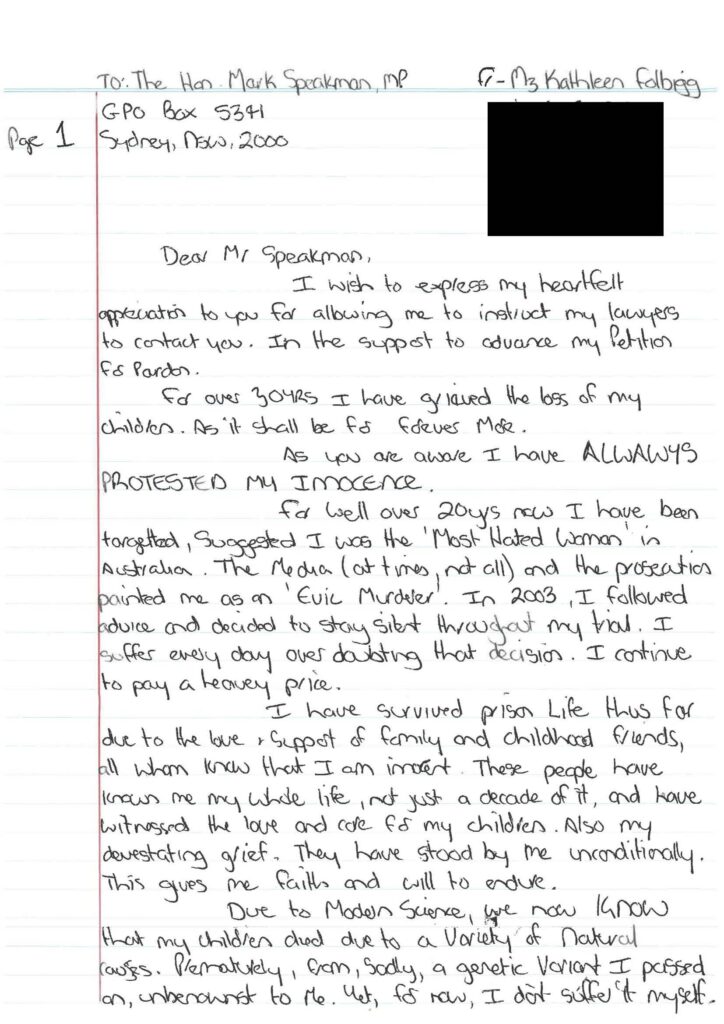 TO: The Hon. Mark Speakman, MP
Fr - Ms Kathleen Folbigg
GPO Box 5341
Page 1
Sydney, NSW, 2000
Dear Mr Speakman,
I wish to express my heartfelt
appreciation to you for allowing me to instruct my lawyers
to contact you. In the support to advance my Petition
for Pardon.
For over 30YRS I have grieved the loss of my
children. As it shall be for forever More.
As you are aware I have ALLWAWYS
PROTESTED MY INNOCENCE.
For well over 20yrs now I have been
targetted, Suggested I was the 'Most Hated Woman' in
Australia. The Media (at times, not all) and the prosecution
painted me as an 'Evil Murderer'. In 2003, I followed
advice and decided to stay silent throughout my trial. I
suffer every day over doubting that decision. I continue
to pay a heavey price.
I have survived prison Life thus far
due to the love & support of family and childhood friends,
all whom know that I am innocent. These people have
known me my whole life, not just a decade of it, and have
witnessed the love and care for my children. Also my
devestating grief. They have stood by me unconditionally.
This gives me faith and will to endure.
Due to Modern Science, we now KNOW
that my children died due to a Variety of Natural
causes. Prematurely, from, Sadly, a genetic Variant I passed
on, unbenownst to Me. Yet, for now, I don't suffer it myself.